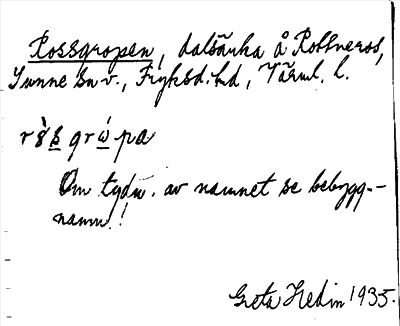 Rossgropen, dalsänka å Rottneros,
Sunne sn v., Fryksd. hd, Värml. l.
Om tydn. av namnet se bebygg.-
namn!
Greta Hedin 1935.